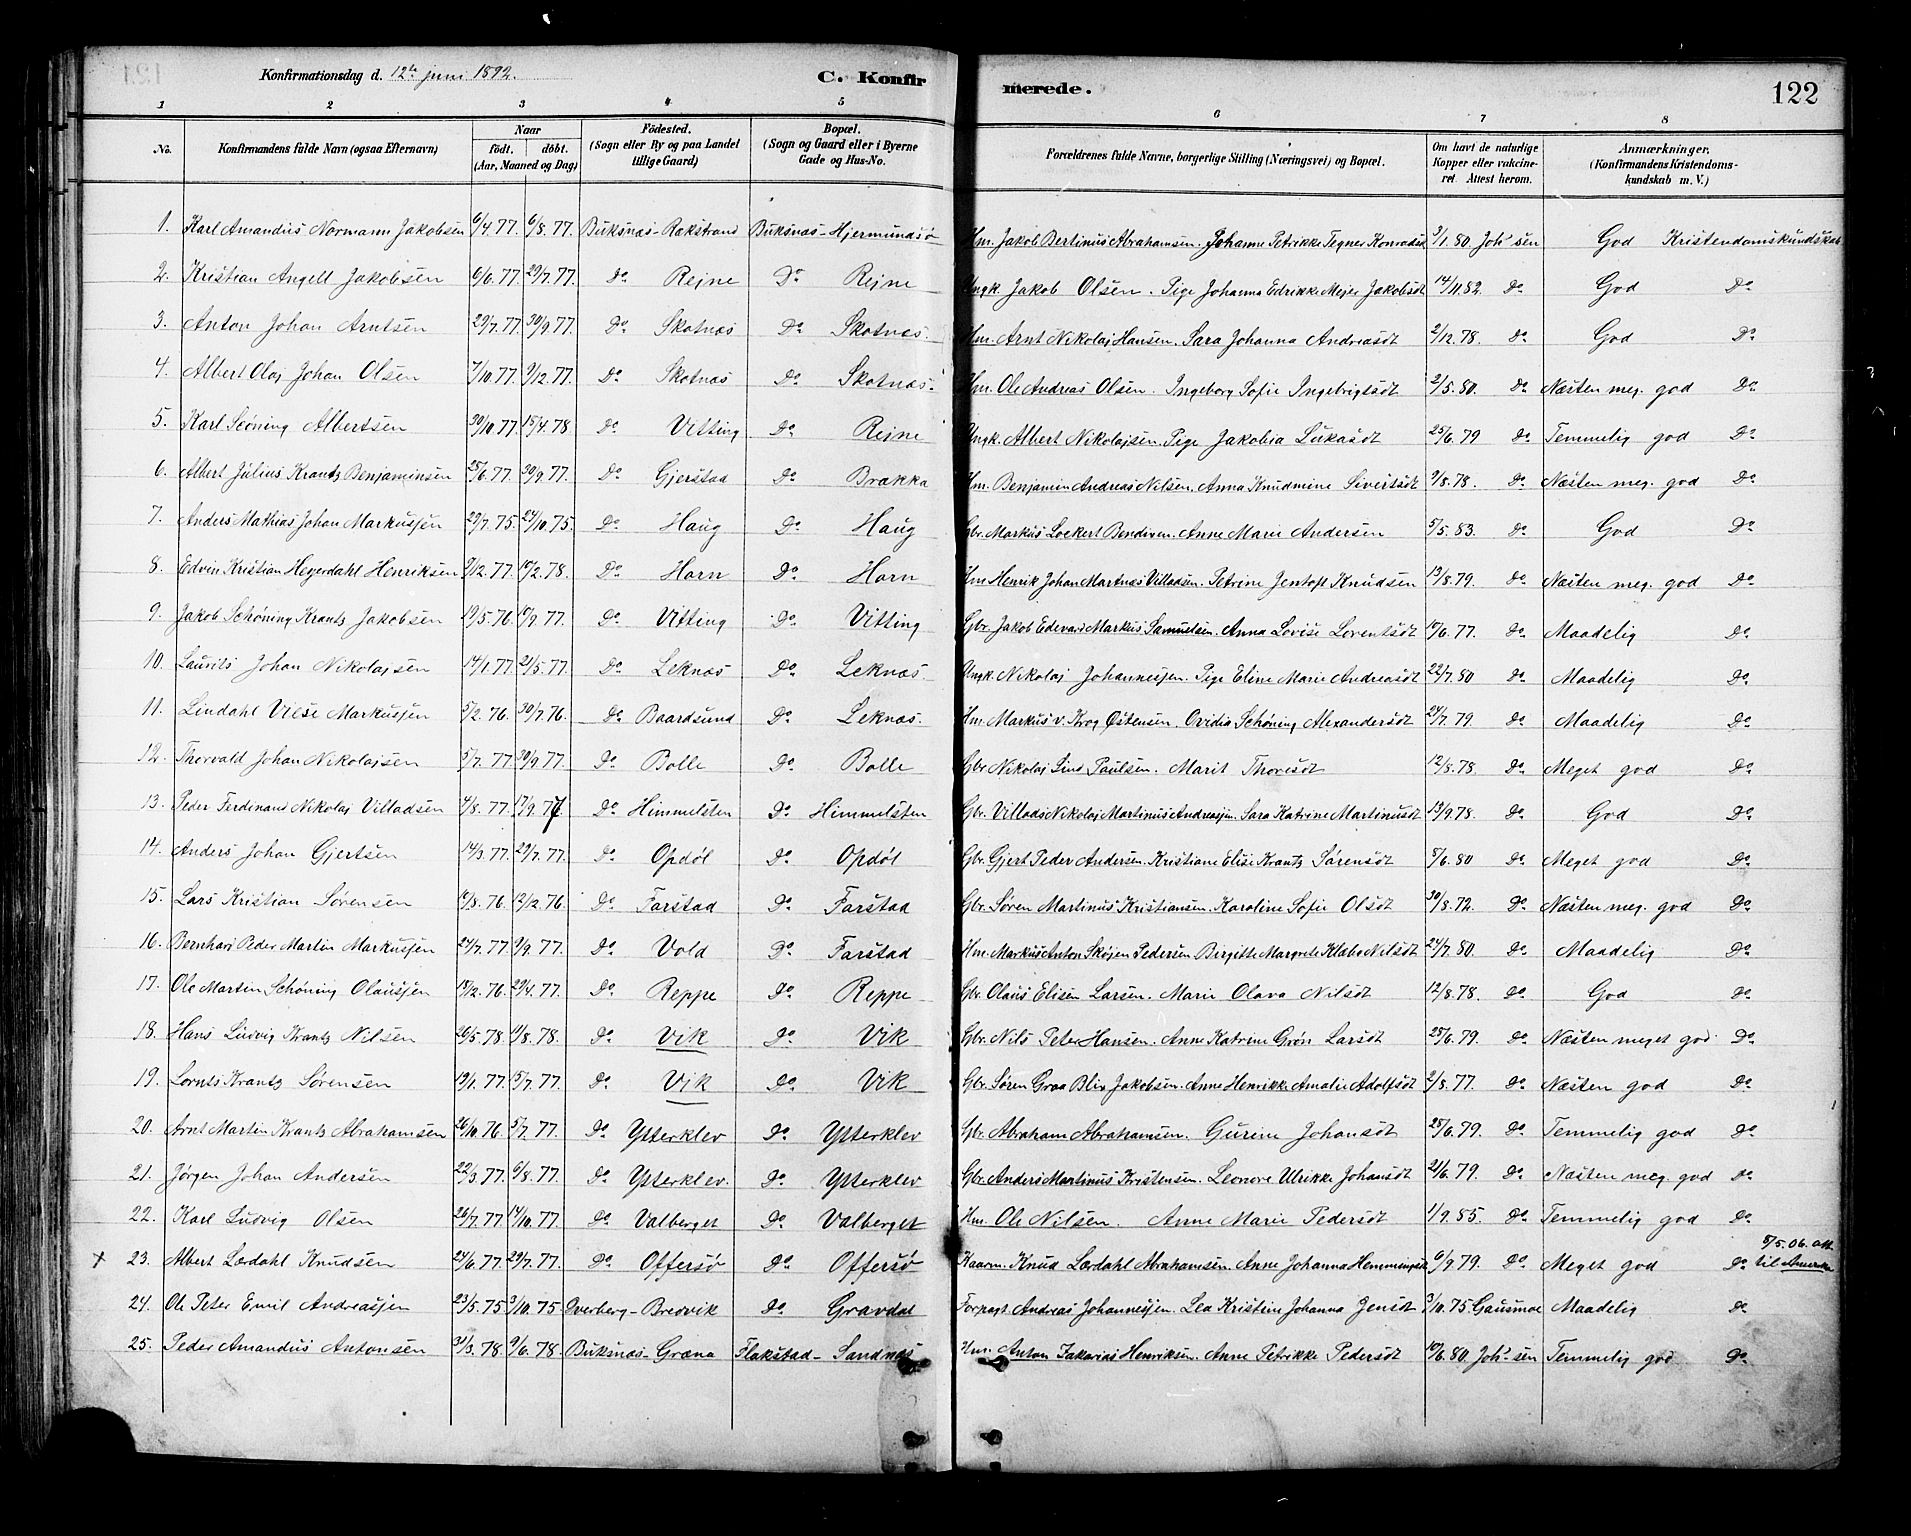 Konfirmationsdag d. 12te juni 1892. C. Konfirmerede. 122
1 2 3 4 5 6 7 8
No. Konfirmandens fulde Navn (ogsaa Efternavn) Naar födt. döbt. (Aar, Maaned og Dag) Födested. (Sogn eller By og paa Landet tillige Gaard) Bopæl. (Sogn og Gaard eller i Byerne Gade og Hus-No. Forældrenes fulde Navne, borgerlige Stilling (Næringsvei) og Bopæl. Om havt de naturlige Kopper eller vakcineret. Attest herom. Anmærkninger. (Konfirmandens Kristendomskundskab m. V.)
1. Karl Amandus Normann Jakobsen 6/4.77. 6/8.77. Buksnæs - Rakstrand Buksnæs - Hjermundsø Hm. Jakob Bertinus Abrahamsen. Johanna Petrikke Tegner Konradsd 3/1.80 Johsen God Kristendomskundskab
2. Kristian Angell Jakobsen 6/6.77. 29/7.77. Do Rejne Do Rejne Ungk. Jakob Olsen. Pige Johanna Edrikke Mejer Jakobsdt 14/11.82. Do God Do
3. Anton Johan Arntsen 29/7.77. 30/9.77. Do Skotnæs Do Skotnæs. Hm. Arnt Nikolaj Hansen. Sara Johanna Andreasdt 2/12.78. Do God Do
4. Albert Olaj Johan Olsen 7/10.77. 9/12.77. Do Skotnæs Do Skotnæs. Hm. Ole Andreas Olsen. Ingeborg Sofie Ingebrigtsdt 2/5.80. Do Næsten meg. god Do
5. Karl Scöning Albertsen 30/10.77. 15/4.78. Do Vitting Do Rejne Ungk. Albert Nikolajsen. Pige Jakobia Lukasdt 25/6.79 Do Temmelig god Do
6. Albert Julius Krantz Benjaminsen 25/6.77. 30/9.77. Do Gjerstad Do Brakka Hm. Benjamin Andreas Nilsen. Anna Knudmine Sivertsdt 9/8.78. Do Næsten meg. god Do
7. Anders Mathias Johan Markussen 29/7.75. 24/10.75. Do Haug Do Haug Gbr. Markus Lockert Bendixen. Anne Marie Andersen 5/5.83. Do God Do
8. Edvin Kristian Heyerdahl Henriksen 9/12.77. 10/2.78. Do Horn Do Horn Hm Henrik Johan Martnæs Villadsen. Petrine Jentoft Knudsen 13/8.79. Do Næsten meg. god Do
9. Jakob Schøning Krantz Jakobsen 19/5.76 10/9.77. Do Vitting Do Vitting Gbr. Jakob Edevard Markus Samuelsen. Anna Lovise Lorentsdt 10/6.77. Do Maadelig Do
10. Laurits Johan Nikolajsen 14/1.77. 21/5.77. Do Leknæs Do Leknæs. Ungk. Nikolaj Johannessen. Pige Eline Marie Andreasdt 22/7.80 Do Maadelig Do
11. Lindahl Vilse Markussen 5/2.76. 30/7.76. Do Baardsund Do Leknæs. Hm. Markus v. Krog Østensen. Ovidia Schøning Alexandersdt 24/7.79. Do Maadelig Do
12. Thorvald Johan Nikolajsen 5/7.77. 30/9.77. Do Bolle Do Bolle Gbr Nikolaj Lind Paulsen. Marit Thoresdt 12/8.78. Do Meget god Do
13. Peder Ferdinand Nikolaj Villadsen 4/8.77. 17/9.77. Do Himmelsten Do Himmelsten Gbr. Villads Nikolaj Martinus Andreassen. Sara Katrine Martinusdt 13/9.78. Do God Do
14. Anders Johan Gjertsen 14/3.77. 29/7.77. Do Opdøl Do Opdøl Gbr. Gjert Peder Andersen. Kristiane Elise Krantz Sørensdt 8/6.80 Do Meget god Do
15. Lars Kristian Sørensen 10/8.76. 12/12.76. Do Farstad Do Farstad Gbr. Søren Martinus Kristiansen. Karoline Sofie Olsdt 30/8.72. Do Næsten meg. god Do
16. Bernhard Peder Martin Markussen 24/7.77. 9/9.77. Do Vold Do Farstad Hm. Markus Anton Skøjen Pedersen Birgitte Margrete Klæbo Nilsdt 24/7.80. Do Maadelig Do
17. Ole Martin Schøning Olaussen 18/12.76. 29/4.77. Do Reppe Do Reppe Gbr. Olaus Elisen Larsen. Marie Olava Nilsdt 12/8.78. Do God Do
18. Hans Ludvig Krantz Nilsen 26/5.78. 11/8.78. Do Vik Do Vik Gbr. Nils Peter Hansen. Anne Katrine Grøn Larsdt 25/6.79. Do Næsten meget god. Do
19. Lornts Krantz Sørensen 19/1.77. 15/7.77. Do Vik Do Vik Gbr. Søren Graa Blix Jakobsen. Anne Henrikke Amalie Adolfsdt 2/8.77. Do Næsten god Do
20. Arnt Martin Krantz Abrahamsen 26/10.76 5/7.77. Do Ytterklev Do Ytterklev Gbr. Abraham Abrahamsen. Gurine Johansdt 25/6.79. Do Temmelig god Do
21. Jørgen Johan Andersen 22/3.77. 6/8.77. Do Ytterklev. Do Ytterklev Gbr. Anders Martinus Kristensen. Leonore Ulrikke Johansdt 21/6.79. Do Næsten meg. god Do
22. Karl Ludvig Olsen 26/7.77. 14/10.77. Do Valberget Do Valberget Hm. Ole Nilsen. Anne Marie Pedersdt 1/9.85. Do Temmelig god Do
x 23. Albert Lærdahl Knudsen 24/6.77. 29/7.77. Do Offersø Do Offersø Kaarm. Knud Lærdahl Abrahamsen. Anne Johanna Hemmingsdt 6/9.79. Do Meget god Do 8/5.06. att. til Amerika
24. Ole Peter Emil Andreassen 23/5.75 3/10.75 Overberg - Bredvik Do Gravdal Forpagt. Andreas Johannessen. Lea Kristine Johanna Jensdt 3/10.75 Gausmoe Maadelig Do
25. Peder Amandus Antonsen 31/3.78 9/6.78. Buksnæs - Græna Flakstad - Sandnæs Hm. Anton Zakarias Henriksen. Anne Petrikke Pedersdt 10/6.80. Johsen Temmelig god Do